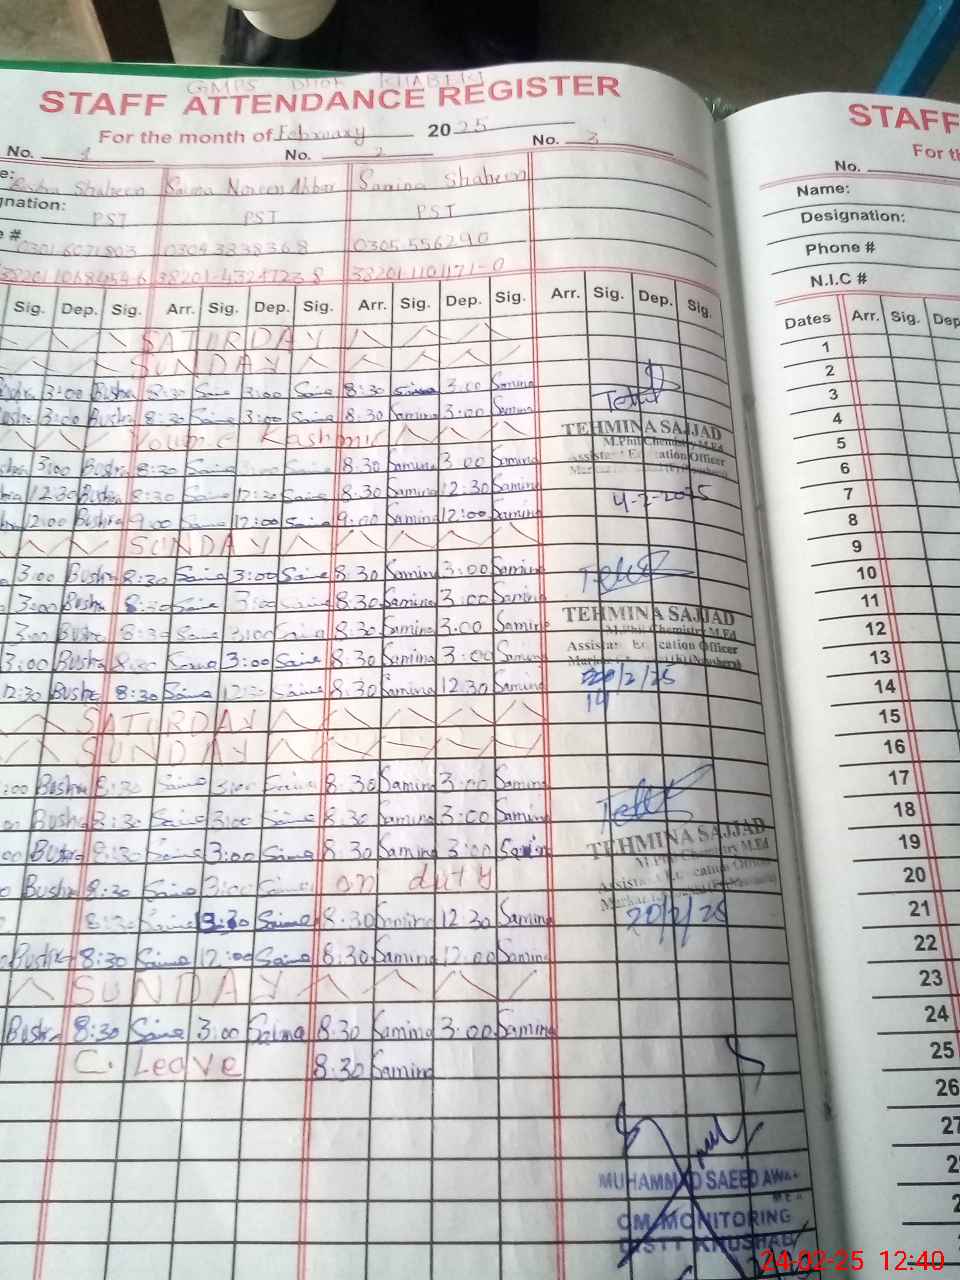 GMPS DHOK KHABEKI
STAFF ATTENDANCE REGISTER
For the month of February 2025
No. 1 No. 2 No. 3
Bushra Shaheen Saima Noreen Abbas Samina Shaheen
gnation: PST PST PST
e # 0304 3338368 0305-556290
Sig. Dep. Sig. Arr. Sig. Dep. Sig. Arr. Sig. Dep. Sig. Arr. Sig. Dep. Sig.
SATURDAY
SUNDAY
3:00 Bushra 8:30 Saima 3:00 Saima 8:30 Samina 3:00 Samina
3:00 Bushra 8:30 Saima 3:00 Saima 8:30 Samina 3:00 Samina
Youm-e Kashmir
3:00 Bushra 8:30 Saima 3:00 Saima 8:30 Samina 3:00 Samina
12:30 Bushra 8:30 Saima 12:30 Saima 8:30 Samina 12:30 Samina
12:00 Bushra 9:00 Saima 12:00 Saima 9:00 Samina 12:00 Samina
SUNDAY
3:00 Bushra 8:30 Saima 3:00 Saima 8:30 Samina 3:00 Samina
3:00 Bushra 8:30 Saima 3:00 Saima 8:30 Samina 3:00 Samina
3:00 Bushra 8:30 Saima 3:00 Saima 8:30 Samina 3:00 Samina
3:00 Bushra Saima 3:00 Saima 8:30 Samina 3:00 Samina
12:30 Bushra 8:30 Saima 12:30 Saima 8:30 Samina 12:30 Samina
SATURDAY
SUNDAY
:00 Bushra 8:30 Saima 3:00 Saima 8:30 Samina 3:00 Samina
Bushra 8:30 Saima 3:00 Saima 8:30 Samina 3:00 Samina
00 Bushra 8:30 Saima 3:00 Saima 8:30 Samina 3:00 Samina
Bushra 8:30 Saima 3:00 Saima on duty
8:30 Saima Saima 8:30 Samina 12:30 Samina
Bushra 8:30 Saima 12:00 Saima 8:30 Samina 12:00 Samina
SUNDAY
Bushra 8:30 Saima 3:00 Saima 8:30 Samina 3:00 Samina
C. Leave 8:30 Samina
TEHMINA SAJJAD
M.Phil Chemistry M.Ed
Assistant Education Officer
4-2-2025
TEHMINA SAJJAD
M.Phil Chemistry M.Ed
Assistant Education Officer
14/2/25
TEHMINA SAJJAD
M.Phil Chemistry M.Ed
Assistant Education Officer
20/2/25
MUHAMMAD SAEED AWA
MEA
CM MONITORING
DISTT KHUSHAB
STAFF
For th
No.
Name:
Designation:
Phone #
N.I.C #
Dates Arr. Sig. Dep
1
2
3
4
5
6
7
8
9
10
11
12
13
14
15
16
17
18
19
20
21
22
23
24
25
26
27
24-02-25 12:40